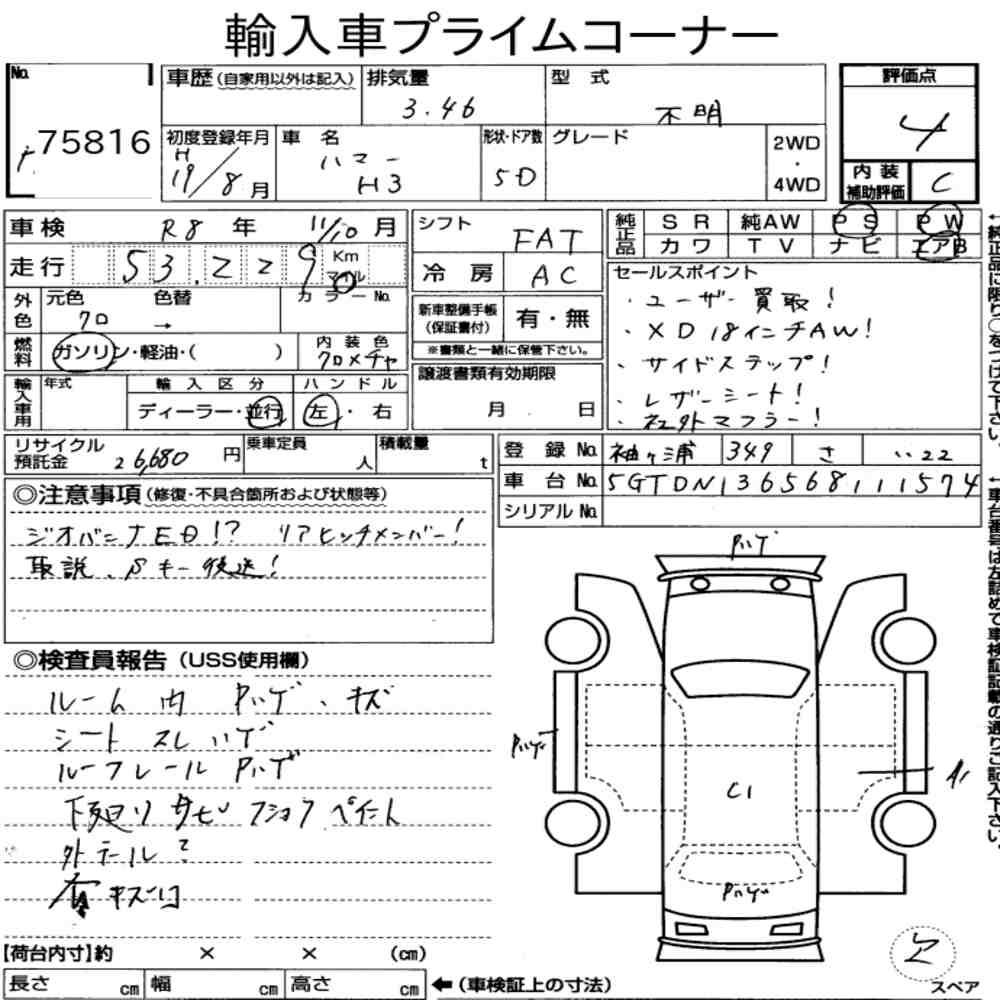 輸入車プライムコーナー
No.
75816
車歴 (自家用以外は記入)
排気量
3.46
型 式
不明
評価点
4
初度登録年月
H
19/8月
車 名
ハマー
H3
形状・ドア数
5D
グレード
2WD
・
4WD
内装
補助評価
C
車検 R8 年 11/10 月
シフト
FAT
純正品
SR 純AW PS PW
カワ TV ナビ エアB
走行 53,229 Km マイル
冷房 AC
セールスポイント
・ユーザー買取!
・XD18インチAW!
・サイドステップ!
・レザーシート!
・社外マフラー!
外色
元色 色替 カラーNo.
クロ →
新車整備手帳
(保証書付)
有・無
※書類と一緒に保管下さい。
燃料
ガソリン・軽油・( )
内装色
クロメチャ
譲渡書類有効期限
月 日
輸入車用
年式
輸入区分 ハンドル
ディーラー・並行 左・右
リサイクル
預託金
26,680 円
乗車定員
人
積載量
t
登録No. 袖ヶ浦 349 さ ‥22
車台No. 5GTDN136568111574
シリアルNo.
◎注意事項 (修復・不具合箇所および状態等)
リアヒッチメンバー!
取説、Sキー後送!
◎検査員報告 (USS使用欄)
ルーム内 Pハゲ、キズ
シートスレハゲ
ルーフレール Pハゲ
下廻りサビ フショク ペイント
外テール?
Pハゲ
Pハゲ
C1
A1
Pハゲ
【荷台内寸】約 × × (cm)
長さ cm 幅 cm 高さ cm ←(車検証上の寸法)
欠
スペア
↑純正品に限り○をつけて下さい。
↑車台番号は左詰めで車検証記載の通りご記入下さい。